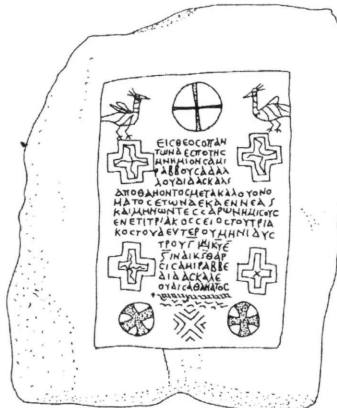 ΕΙCΘΕΟCΟΠΑΝ
ΤΩΝΔΕCΠΟΤΗC
ΜΝΗΜΙΟΝCΑΜΙ
ΡΑΒΒΟΥCΑΔΑΛ
ΛΟΥΔΙΔΑCΚΑΛS
ΑΠΟΘΑΝΟΝΤΟCΜΕΤΑΚΑΛΟΥΟΝΟ
ΜΑΤΟCΕΤΩΝΔΕΚΑΕΝΝΕΑS
ΚΑΙΜΗΝΩΝΤΕCCΑΡΩΝΗΜΙCΥC
ΕΝΕΤΙΤΡΙΑΚΟCCΕΙΟCΤΟΥΤΡΙΑ
ΚΟCΤΟΥΔΕΥΤΕΡΟΥΜΗΝΙΔΥC
SΙΝΔΙΚSΘΑΡ
CΙCΑΜΙΡΑΒΒΕ
ΔΙΔΑCΚΑΛΕ
ΟΥΔΙCΑΘΑΝΑΤΟC